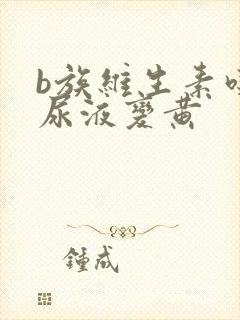 b族維生素
尿液變黃
鍾成